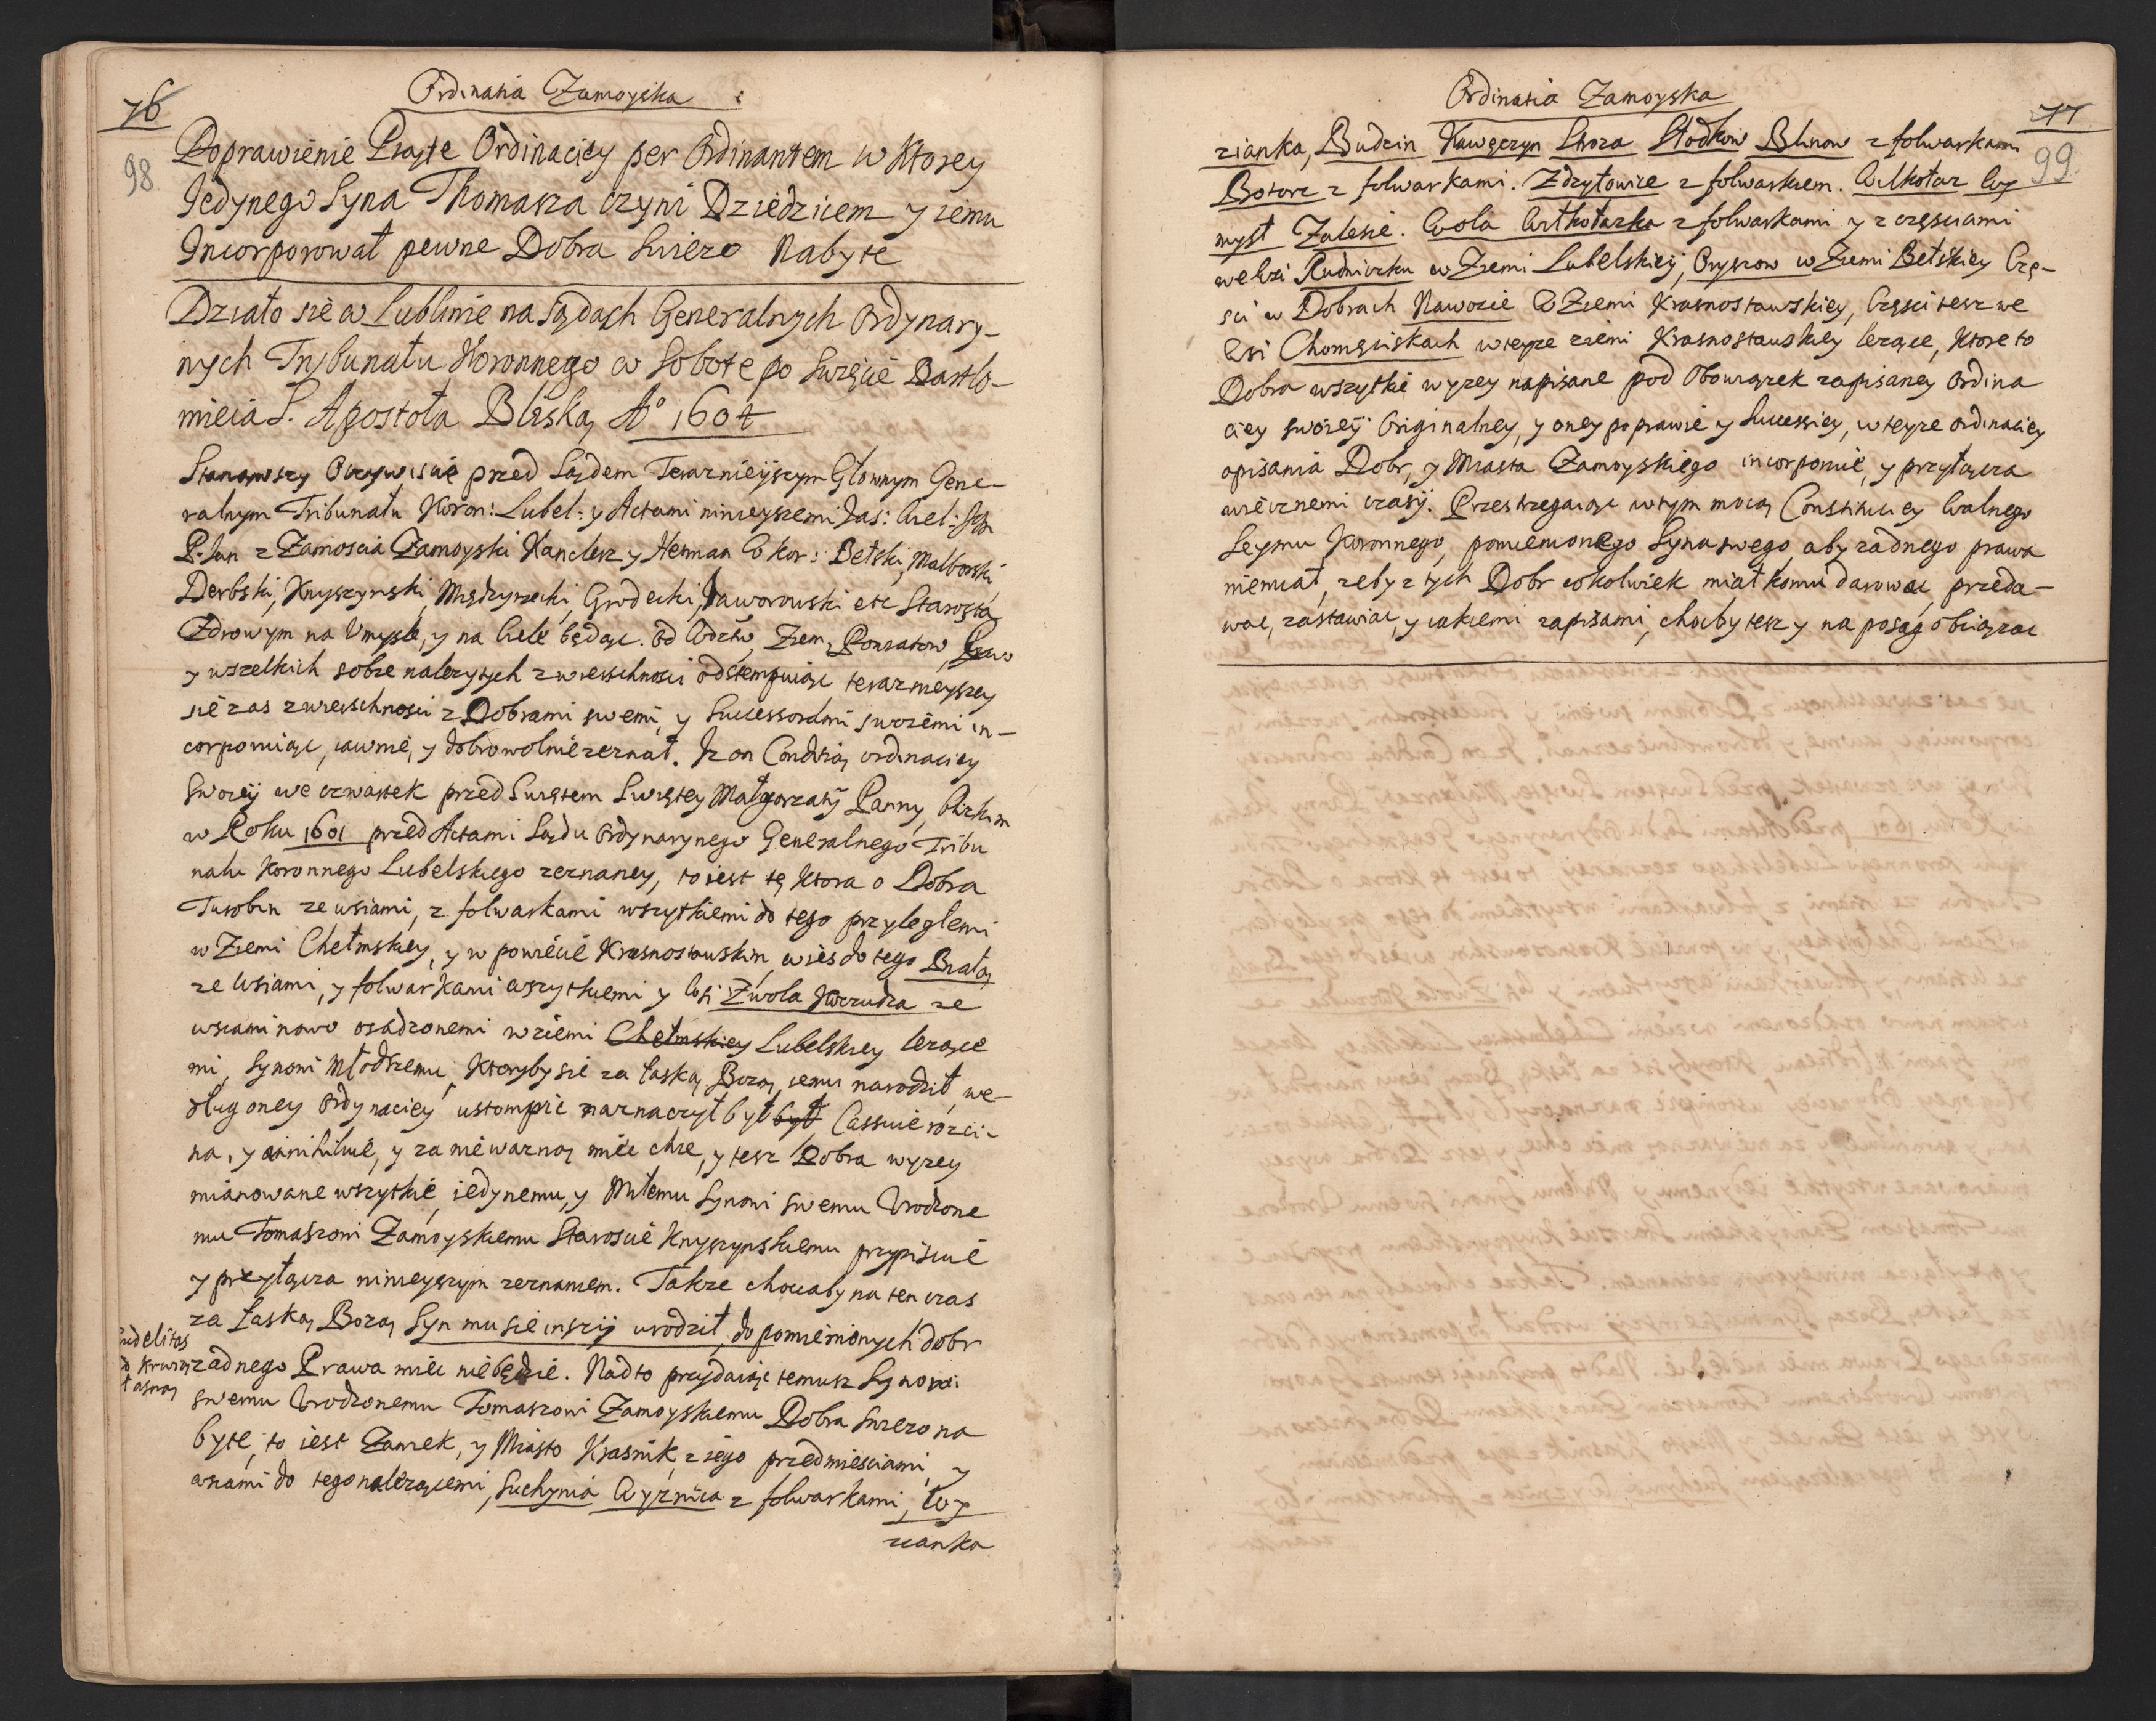 76
98
Ordinatia Zamoyska
Poprawienie Piąte Ordinaciey per Ordinantem w Ktorey
Jedynego Syna Thomasza czyni Dziedzicem y iemu
Incorporował pewne Dobra Swiezo Nabyte
Działo sie w Lublinie na Sądach Generalnych Ordynary-
inych Trybunału Koronnego w Sobote po Swięcie Bartło-
mieia S. Apostoła Bliską Aº 1604
Stanowszy Oczywiscie przed Sądem Teraznieyszym Głownym Gene-
ralnym Tribunału Koron: Lubel: y Actami ninieyszemi Jas: Wiel:
P. Jan z Zamoscia Zamoyski Kanclerz y Hetman W. Kor: Bełski, Malborski
Derbski, Knyszynski, Międzyrzecki, Grodecki, Jaworowski etc Starosta
Zdrowym na Umysle, y na Ciele będąc. od Wdztw, Ziem, Powiatow, Praw
y wszelkich sobie nalezytych zwierzchnosci odstempuiąc teraznieyszey
sie zas zwierzchnosci z Dobrami swemi, y Successorami swoiemi in-
corporuiąc, iawnie, y dobrowolnie zeznał. Iz on Conditią ordinaciey
swoiey we czwartek przed Swiętem Swiętey Małgorzaty Panny, blizkim
w Roku 1601 przed Actami Sądu Ordynarynego Generalnego Tribu
nału Koronnego Lubelskiego zeznaney, to iest tę ktora o Dobra
Turobin ze wsiami, z folwarkami wszytkiemi do tego przyległemi
w Ziemi Chełmskiey, y w powiecie Krasnostawskim, wies do tego Biała
ze wsiami, y folwarkami wszytkiemi y Wsi Zwola Korzudza ze
wsiami nowo osadzonemi w ziemi Chełmskiey Lubelskiey lezące
mi, Synowi Młodszemu, Ktoryby sie za łaską Bozą iemu narodził, we-
dług oney Ordynaciey ustompic naznaczył był był Cassuie rzci-
na, y annihiluie, y za niewazną miec chce, y tesz Dobra wyzey
mianowane wszytkie, iedynemu, y Miłemu Synowi swemu Urodzone
mu Tomaszowi Zamoyskiemu Staroscie Knyszynskiemu przypisuie
y przyłącza ninieyszym zeznaniem. Takze chociaby na ten czas
za Łaską Bozą Syn mu sie inszy urodził, do pomienionych dobr
zadnego Prawa miec niebędzie. Nadto przydaiąc temusz Synowi
swemu Urodzonemu Tomaszowi Zamoyskiemu Dobra swiezo na
byte, to iest Zamek, y Miasto Krasnik, z iego przedmiesciami, y
wsiami do tego nalezącemi, Suchynia Wyznica z folwarkami, Wy
zianka
Ordinatia Zamoyska
77
99
zianka, Budzin Kawęczyn Stroza Słodkow Blinow z folwarkami
Botorz z folwarkami. Zdzyłowice z folwarkiem. Wilkołaz Wy
mysł Zalesie. Wola Wilkołazka z folwarkami y z częsciami
we Wsi Rudniczku w Ziemi Lubelskiey, Oryszow w Ziemi Bełskiey Czę-
sci w Dobrach Nawozie W Ziemi Krasnostawskiey, Częsci tesz we
Wsi Chomęciskach w teyze ziemi Krasnostawskiey lezące, Ktore to
Dobra wszytkie wyzey napisane pod Obowiązek zapisaney Ordina
ciey swoiey Originalney, y oney poprawie y Successiey, w teyze Ordinaciey
opisania Dobr, y Miasta Zamoyskiego incorporuie, y przyłącza
wiecznemi czasy. Przestrzegaiąc w tym mocą Constituciey Walnego
Seymu Koronnego, pomienionego Syna swego, aby zadnego prawa
niemiał, zeby z tych Dobr cokolwiek miał komu darowac, przeda-
wac, zastawiac, y iakiemi zapisami, choćby tesz y na posag obciązac